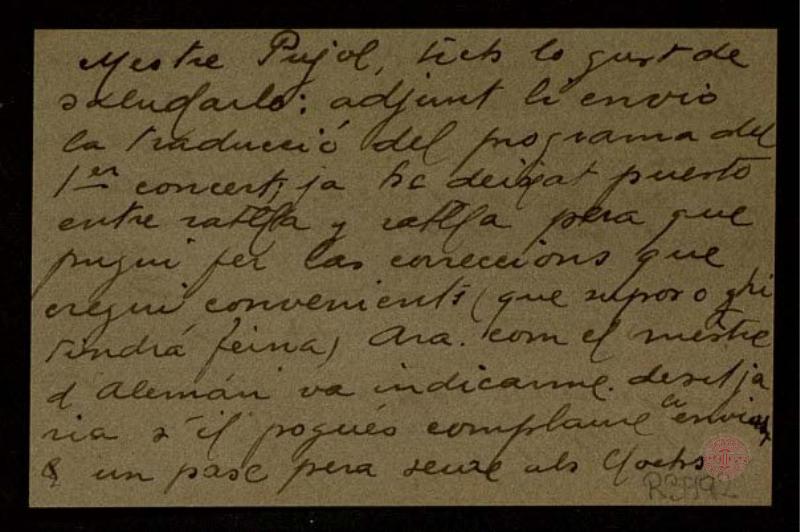 Mestre Pujol, tich lo gust de
saludarlo: adjunt li envio
la traducció del programa del
1er concert; ja he deixat puesto
entre ratlla y ratlla pera que
pugui fer las correccions que
cregui convenients (que suposo q hi
tindrá feina) Ara. com el mestre
d'Alemán va indicarme. desitja
ria s'il pogués complaure enviar
un pase pera seure als
R3192